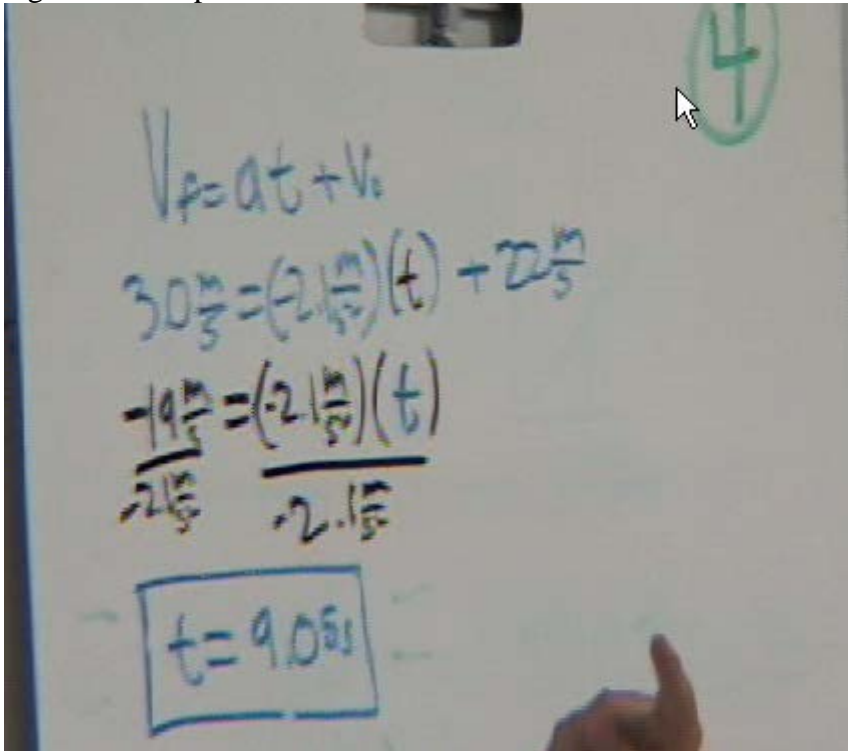 4
V_f = at + V_0
3.0 m/s = (-2.1 m/s²)(t) + 22 m/s
-19 m/s = (-2.1 m/s²)(t)
-2.1 m/s² -2.1 m/s²
t = 9.05s